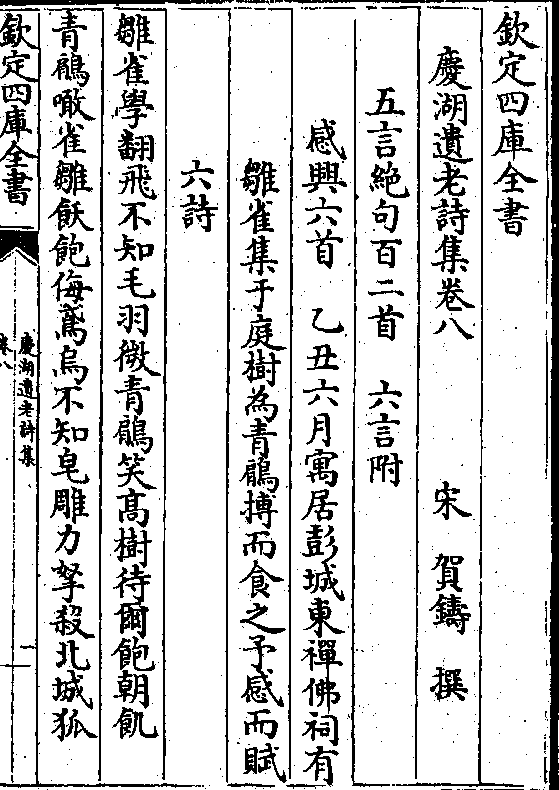 欽定四庫全書
慶湖遺老詩集卷八
宋 賀鑄 撰
五言絶句百二首 六言附
感興六首 乙丑六月寓居彭城東禪佛祠有
雛雀集于庭樹為青鶻搏而食之予感而賦
六詩
雛雀學翻飛不知毛羽微青鶻笑髙樹待爾飽朝飢
青鶻噉雀雛飫飽侮鳶烏不知皂雕力拏殺北城狐
欽定四庫全書
慶湖遺老詩集
卷八
一